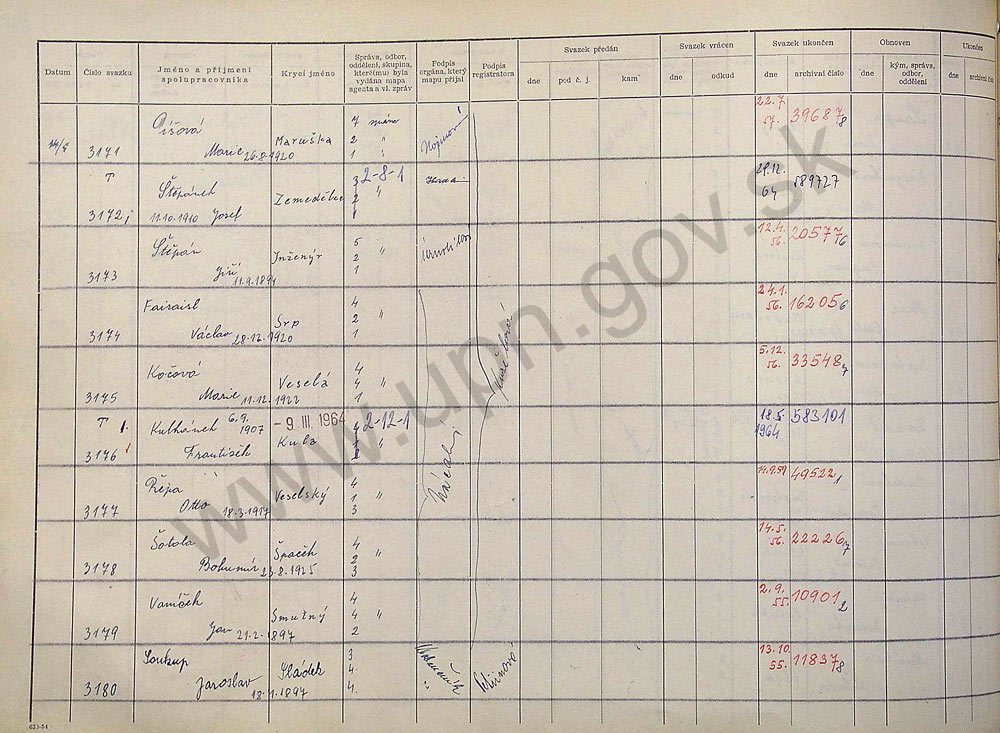 Datum
Číslo svazku
Jméno a příjmení
spolupracovníka
Krycí jméno
Správa, odbor,
oddělení, skupina,
které(mu) byla
vydána mapa
agenta a vl. zpráv
Podpis
orgána, který
mapu přijal
Podpis
registratora
Svazek předán
dne
pod č. j.
kam
Svazek vrácen
dne
odkud
Svazek ukončen
dne
archivní číslo
Obnoven
dne
kým, správa,
odbor,
oddělení
Ukončen
dne
archivní číslo
3171
Píšová
Marie 26.8.1920
Maruška
7
2 "
1 "
22.7.
57.
39687/8
T
3172
Štěpánek
11.10.1910 Josef
Zemědělec
3 2-8-1
2 "
1
29.12.
64
589727
3173
Štěpán
Jiří 11.9.1894
Inženýr
5
2 "
1
12.4.
56.
20577/6
3174
Fairaisl
Václav 28.12.1920
Srp
4
2 "
1
24.1.
56.
16205/6
3175
Kočová
Marie 11.12.1922
Veselá
4
4 "
1
5.12.
56.
33548/7
T 1.
3176
Kulhánek 6.9.
1907
František
- 9. III. 1964
Kula
4 2-12-1
1 "
2
18.5
1964
583101
3177
Řepa
Otto 18.3.1917
Veselský
4
1 "
3
14.9.59
49522/1
3178
Šotola
Bohumír 23.8.1925
Špaček
4
2 "
3
14.5.
56.
22226/7
3179
Vaníček
Jan 21.2.1897
Smutný
4
4 "
2
2.9.
55.
10901/2
3180
Soukup
Jaroslav 18.1.1897
Sládek
3.
4
4.
13.10.
55.
11837/8
www.upn.gov.sk